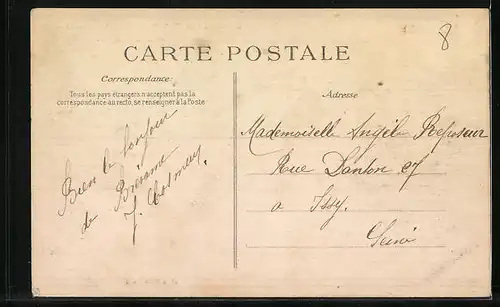 8
CARTE POSTALE
Correspondance:
Tous les pays étrangers n'acceptent pas la
correspondance au recto, se renseigner à la Poste
Adresse
Bien le bonjour
de
J.
Mademoiselle Angèle
Rue Danton 27
a Issy.
Seine